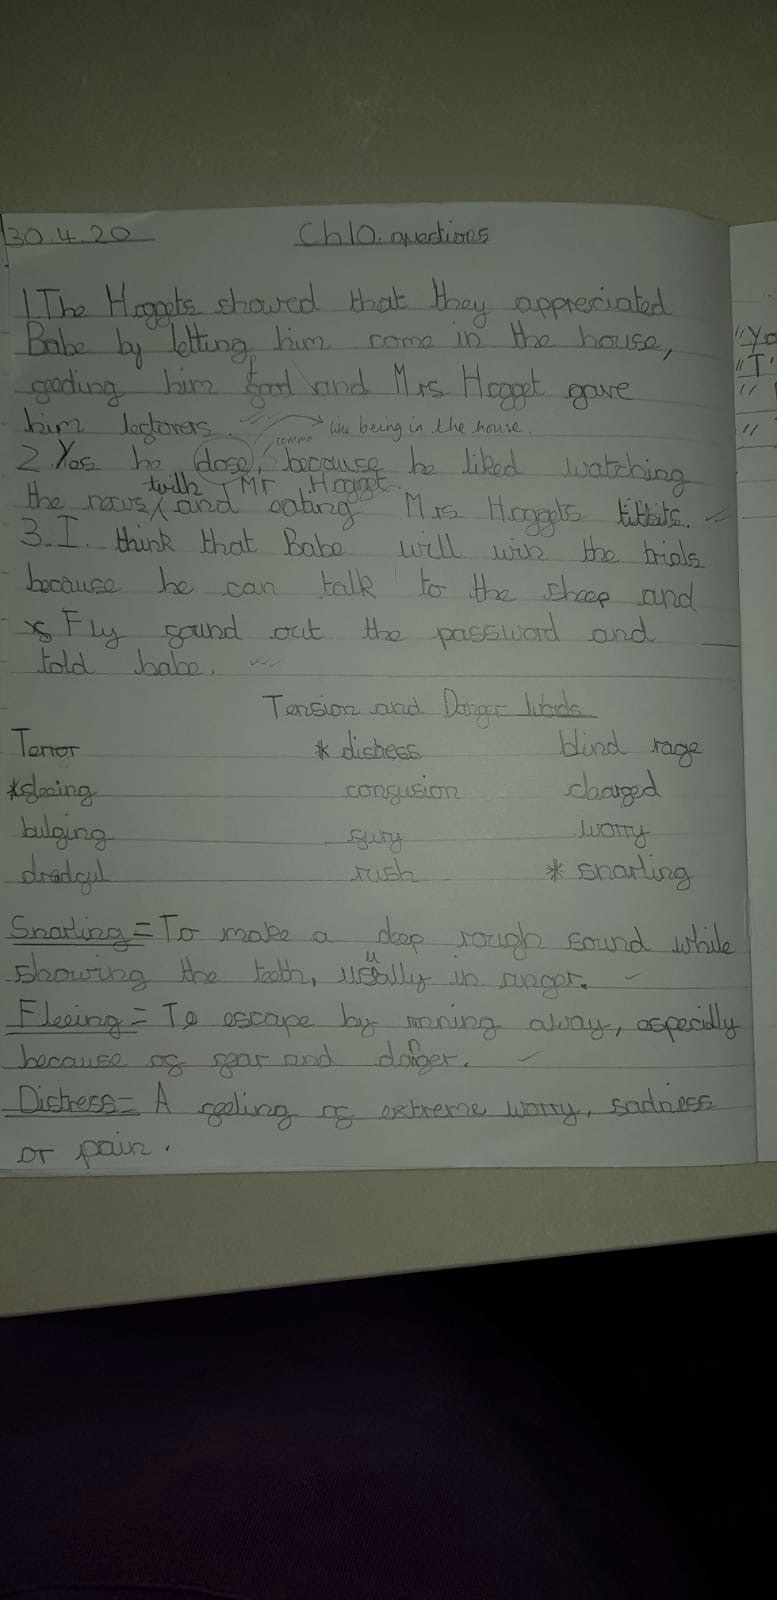 30.4.20 Ch10. questions
1 The Hoggets showed that they appreciated
Babe by letting him come in the house,
feeding him food and Mrs Hogget gave
him leftovers.
like being in the house.
comma
2 Yes he dose, because he liked watching
with Mr Hogget.
the news, and eating Mrs Hoggets titbits.
3. I think that Babe will win the trials
because he can talk to the sheep and
Fly found out the password and
told babe.
"Yo
"T
"
"
Tension and Danger Words
Terror * distress blind rage
*fleeing confusion charged
bulging fury worry
dredful rush * snarling
Snarling = To make a deep rough sound while
showing the teeth, usually in anger.
Fleeing = To escape by running away, especially
because of fear and danger.
Distress = A feeling of extreme worry, sadness
or pain.